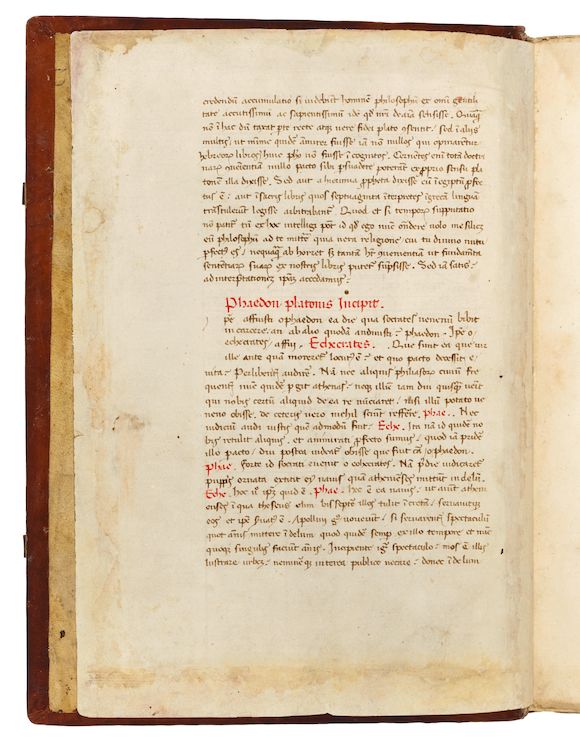 credendū accumulatio si videbit hominem philosophū ex omi gentili
tate accuratissimū ac sapientissimū idē qd nri de aīa sensisse.
nō ī hac dū taxat pte recte atqȝ vere fidei plato ɔsentit, sed ī aliis
multis, ut mīme quidē fuisse iā nō nullos qui opinarētur
hebreoꝝ libros huic pho nō fuisse īcognitos. Cernētes enī totā doctri
nullo pacto sibi psuadere poterant ex pprio sensu pla
tonē illa dixisse. Sed aut a hieremia ppheta dixisse cū ī egipto pfec
tus ē, aut ī sacris libris quos septuaginta īterpretes ī grecā linguā
trāstulerūt legisse arbitrabant. Quod et si temporū supputatio
nō patit tn ex hoc intelligi pōt id qd ego nūc ondere volo me silicȝ
eū philosophū ad te mitte qui a vera religione cui tu divino nutu
pfectꝰ es, nequaqȝ abhorret
sententiaꝝ suaꝝ ex nostris libris putet sūpsisse. Sed iā satis,
ad interptationeȝ ipam accedamus.
Phaedon platonis Incipit.
Ipe affuisti o phaedon ea die qua socrates venenū bibit
in carcere, an ab alio quodā audivisti? phaedon. Ipe o
echecrates, affui. Echecrates. Que sunt ea que vir
ille ante quā moreret locutꝰ ē? et quo pacto decessit e
vita? Perlibenter audirē. Nā nec aliquis philiasioꝝ civiū fre
quenter nūc quidē pgit athenas, neqȝ illinc iam diu quisqȝ venit
qui nobis certū aliquid de ea re nūciaret, nisi illū potato ve
neno obisse, de ceteris vero nichil scivit referre. Phae. Nec
iudiciū audi vistis quē admodū fuit. Eche. Ita nā id quidē no
bis retulit aliquis, et ammirati pfecto sumus, quod iā pridē
illo pacto, diu postea videat obisse que fuit cā o phaedon.
Phae. Forte id socrati evenit o echecrates. Nā pdie iudicatꝰ
puppis ornata extitit eȝ navis quā atheniēses mittūt in delū.
Eche. hoc ipȝ quid ē. Phae. hec ē ea navis, ut aiunt atheni
enses ī qua theseus olim bis septē illos tulit ī cretā, servavitqȝ
eos et ipe ē. Apollini gͦ voverūt, si servarent spectaculū
quot annis mittere ī delum quod quidē semp ex illo tempore et nūc
quoqȝ singulis faciūt annis. Incipiente igͬ spectaculo, mos ē illis
lustrare urbeȝ, neminēqȝ interea publico necare, donec ī delum